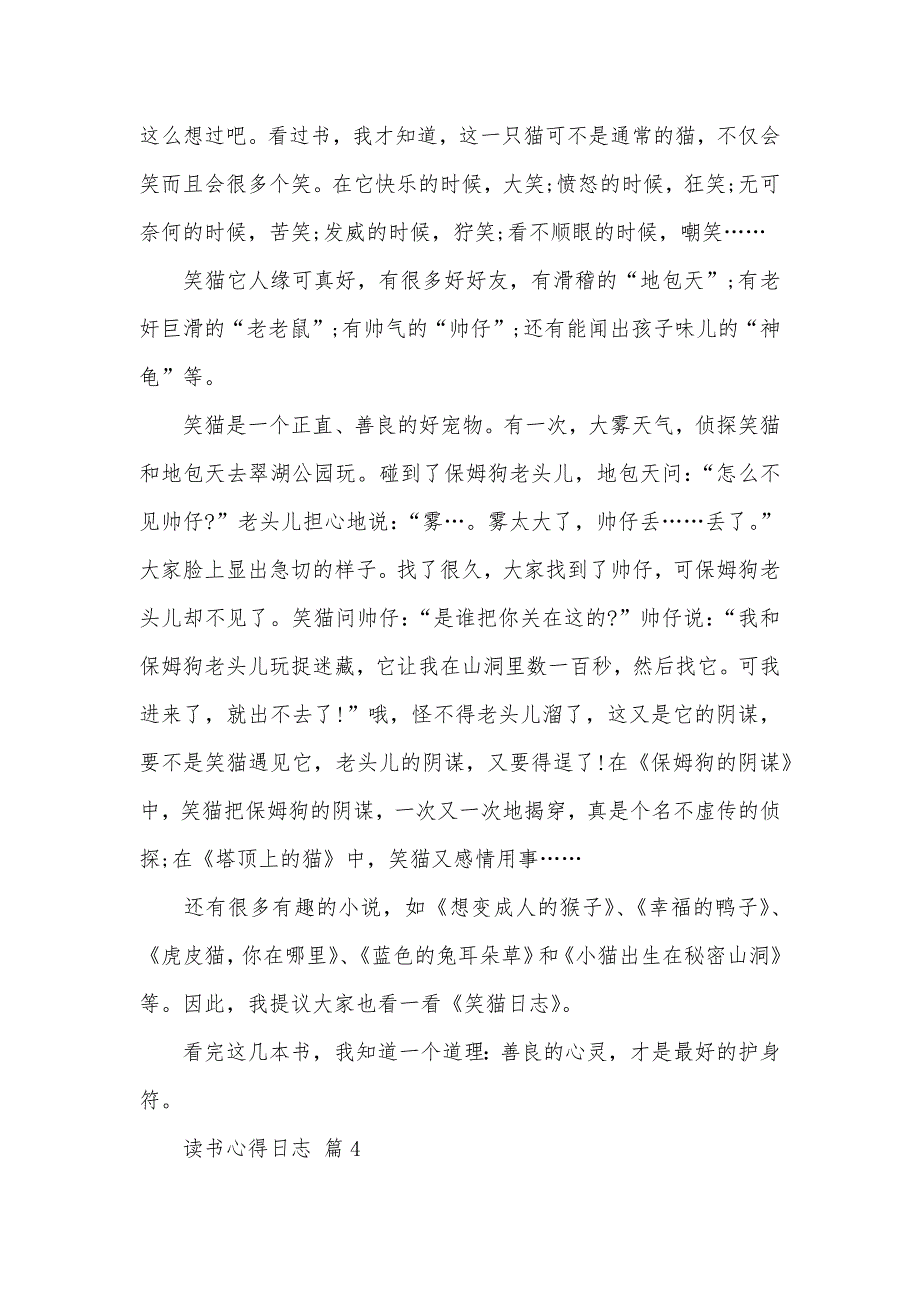 这么想过吧。看过书，我才知道，这一只猫可不是通常的猫，不仅会
笑而且会很多个笑。在它快乐的时候，大笑;愤怒的时候，狂笑;无可
奈何的时候，苦笑;发威的时候，狞笑;看不顺眼的时候，嘲笑……
笑猫它人缘可真好，有很多好好友，有滑稽的“地包天”;有老
奸巨滑的“老老鼠”;有帅气的“帅仔”;还有能闻出孩子味儿的“神
龟”等。
笑猫是一个正直、善良的好宠物。有一次，大雾天气，侦探笑猫
和地包天去翠湖公园玩。碰到了保姆狗老头儿，地包天问：“怎么不
见帅仔?”老头儿担心地说：“雾…。雾太大了，帅仔丢……丢了。”
大家脸上显出急切的样子。找了很久，大家找到了帅仔，可保姆狗老
头儿却不见了。笑猫问帅仔：“是谁把你关在这的?”帅仔说：“我和
保姆狗老头儿玩捉迷藏，它让我在山洞里数一百秒，然后找它。可我
进来了，就出不去了!”哦，怪不得老头儿溜了，这又是它的阴谋，
要不是笑猫遇见它，老头儿的阴谋，又要得逞了!在《保姆狗的阴谋》
中，笑猫把保姆狗的阴谋，一次又一次地揭穿，真是个名不虚传的侦
探;在《塔顶上的猫》中，笑猫又感情用事……
还有很多有趣的小说，如《想变成人的猴子》、《幸福的鸭子》、
《虎皮猫，你在哪里》、《蓝色的兔耳朵草》和《小猫出生在秘密山洞》
等。因此，我提议大家也看一看《笑猫日志》。
看完这几本书，我知道一个道理：善良的心灵，才是最好的护身
符。
读书心得日志 篇4